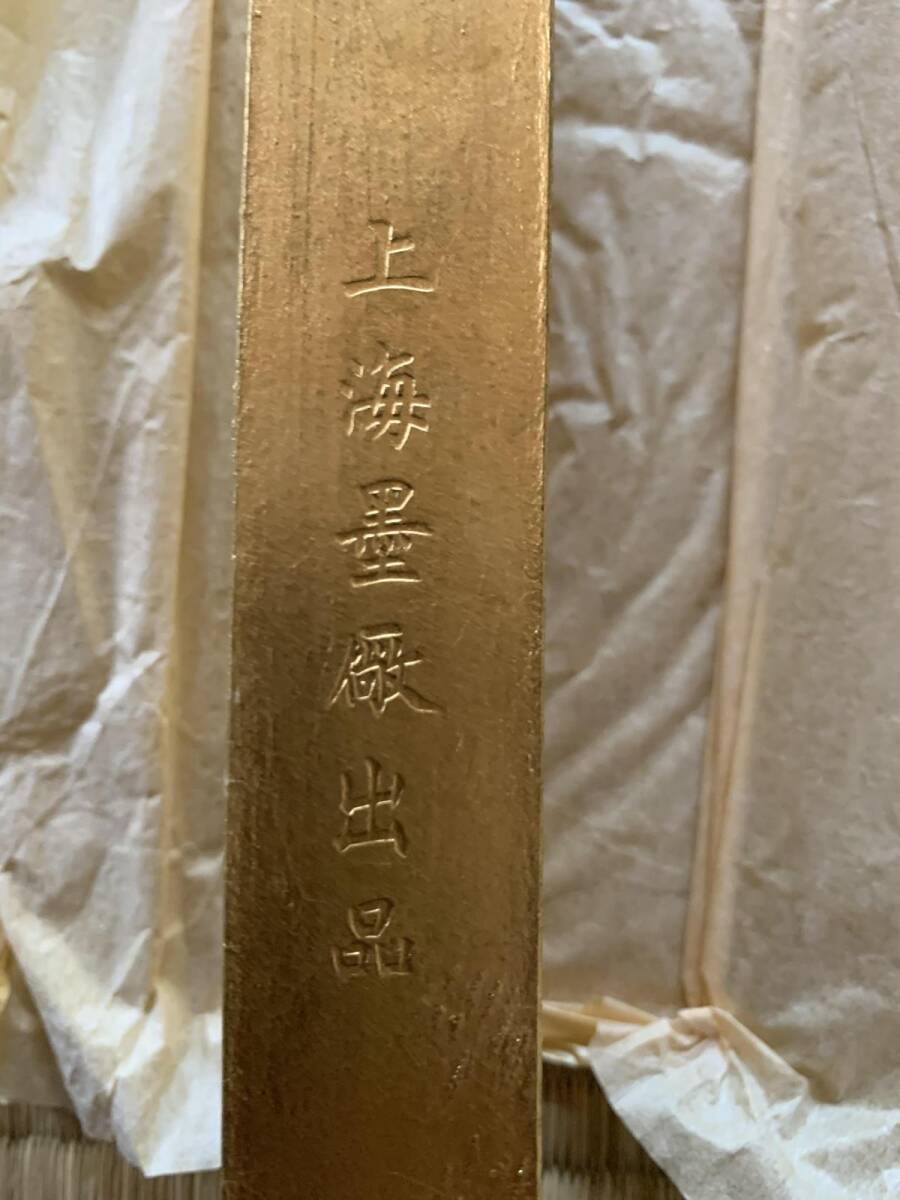 上海墨厰出品